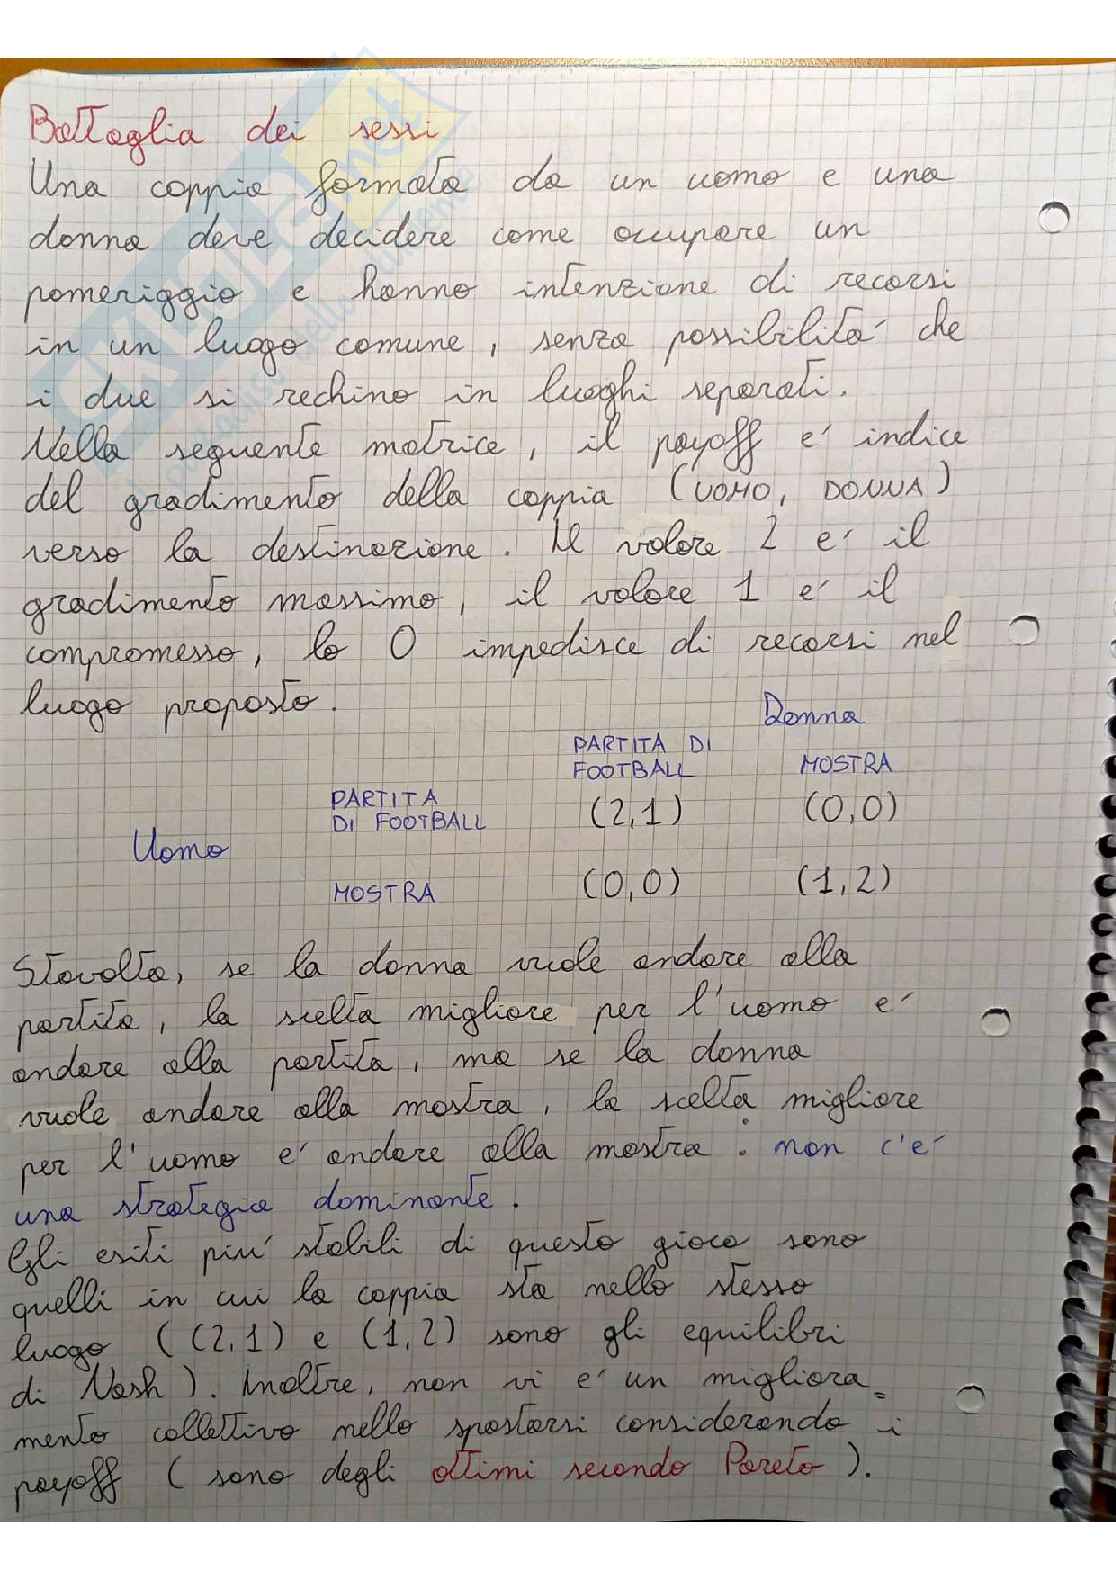 Battaglia dei sessi
Una coppia formata da un uomo e una
donna deve decidere come occupare un
pomeriggio e hanno intenzione di recarsi
in un luogo comune, senza possibilità che
i due si rechino in luoghi separati.
Nella seguente matrice, il payoff e' indice
del gradimento della coppia (UOMO, DONNA)
verso la destinazione. Il valore 2 e' il
gradimento massimo, il valore 1 e' il
compromesso, lo 0 impedisce di recarsi nel
luogo proposto.
Donna
PARTITA DI
FOOTBALL MOSTRA
PARTITA
DI FOOTBALL (2,1) (0,0)
Uomo
MOSTRA (0,0) (1,2)
Stavolta, se la donna vuole andare alla
partita, la scelta migliore per l'uomo e'
andare alla partita, ma se la donna
vuole andare alla mostra, la scelta migliore
per l'uomo e' andare alla mostra: non c'e'
una strategia dominante.
Gli esiti piu' stabili di questo gioco sono
quelli in cui la coppia sta nello stesso
luogo ((2,1) e (1,2) sono gli equilibri
di Nash). Inoltre, non vi e' un migliora=
mento collettivo nello spostarsi considerando i
payoff (sono degli ottimi secondo Pareto).